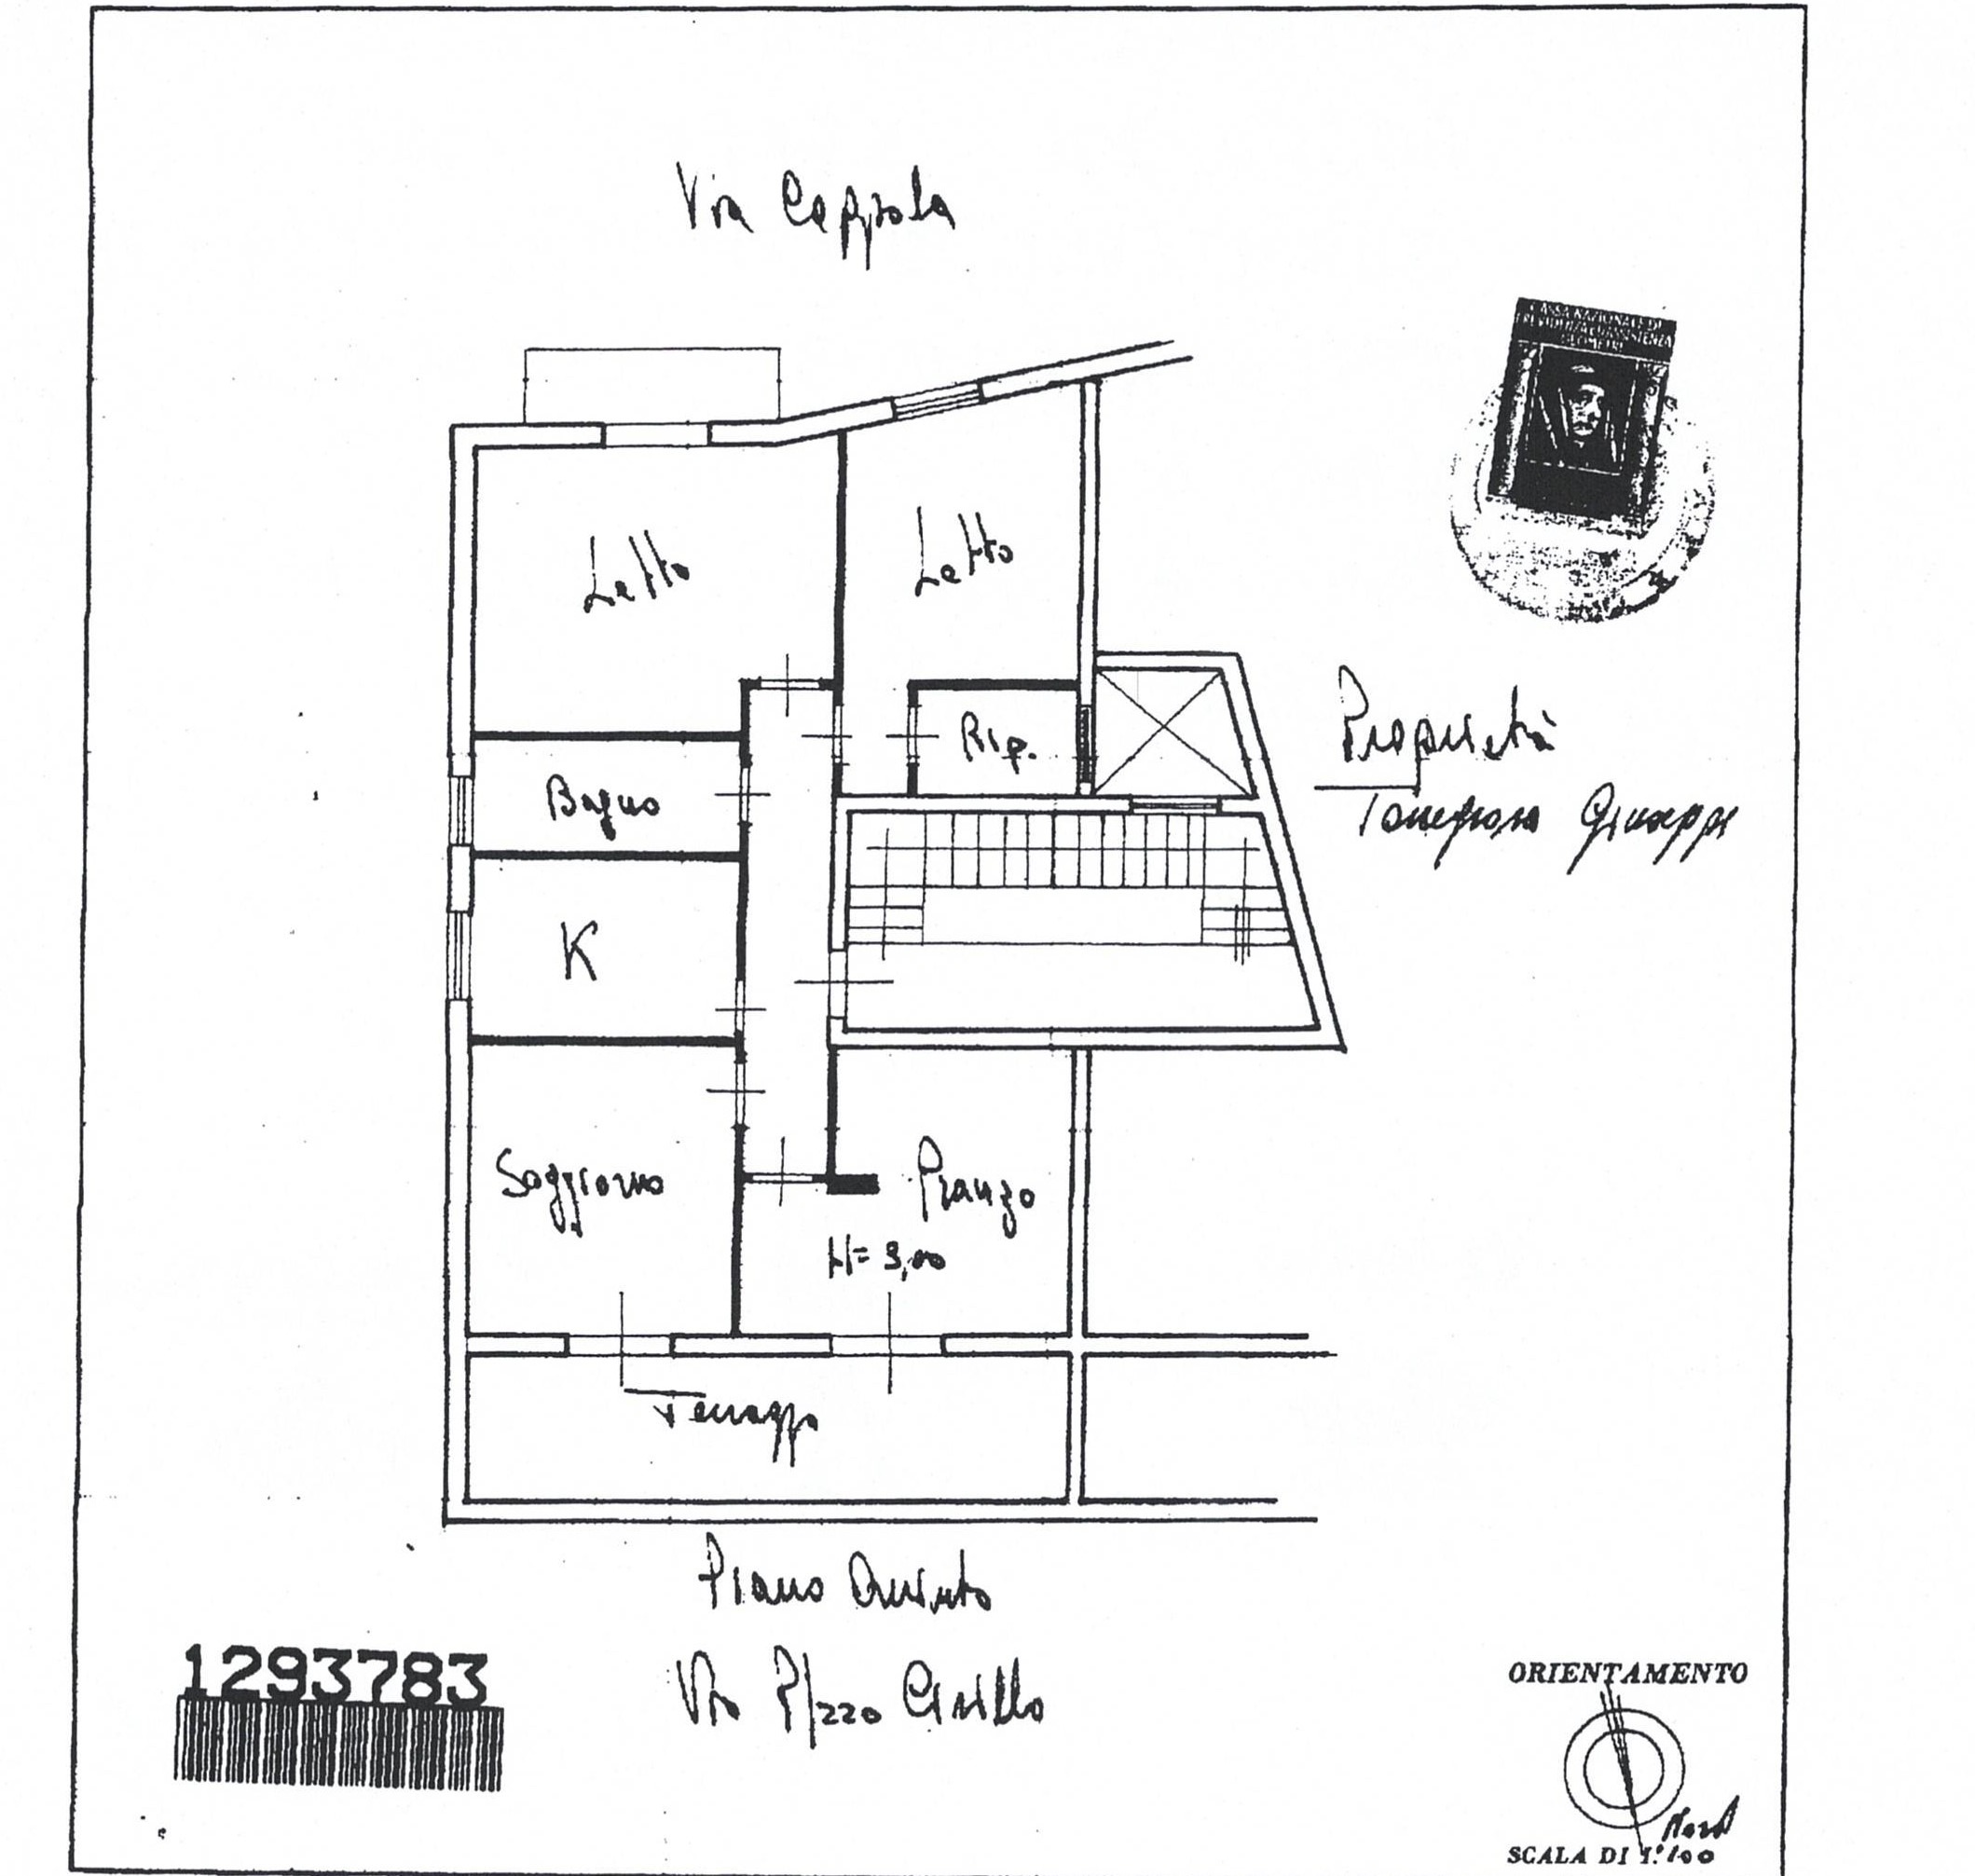 Via Coppola
CASSA NAZIONALE DI
PREVIDENZA ED ASSISTENZA
GEOMETRI
Letto
Letto
Proprietà
Giuseppe
Rip.
Bagno
K
Soggiorno
Pranzo
H= 3,00
Terrazzo
Piano Quinto
Via P/zzo Cirillo
1293783
ORIENTAMENTO
Nord
SCALA DI 1:100